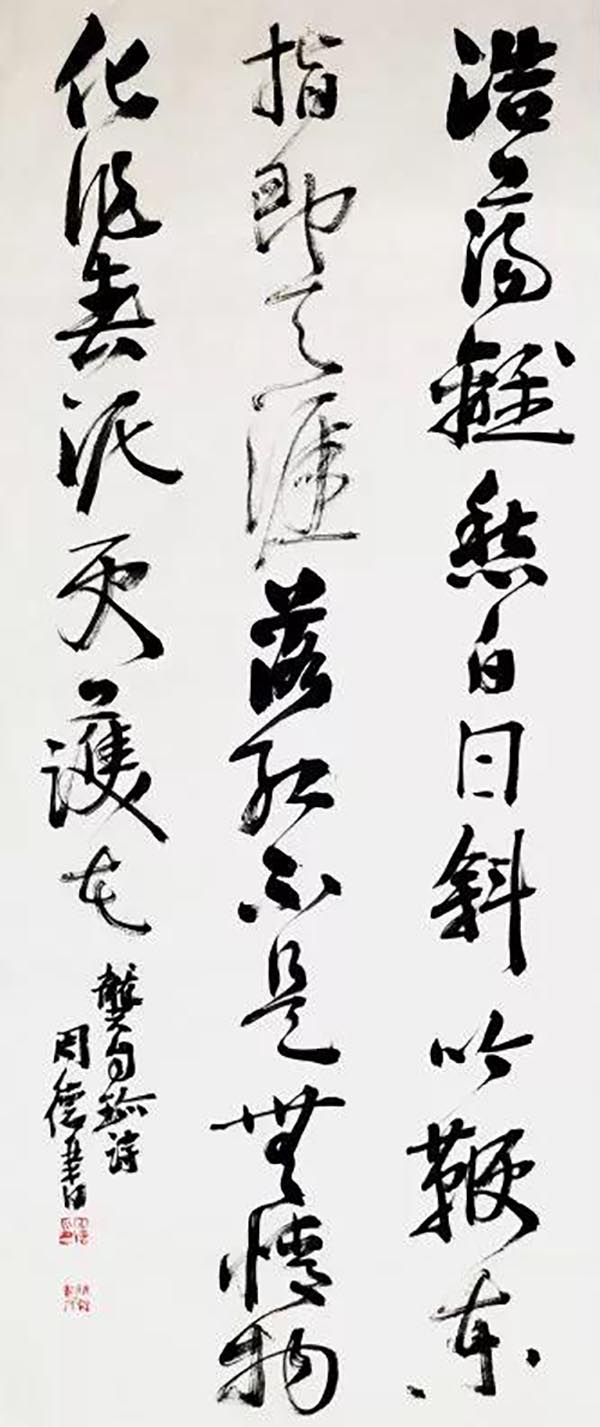 浩蕩離愁白日斜吟鞭東
指即天涯落紅不是無情物
化作春泥更護花
龔自珍詩
周德書